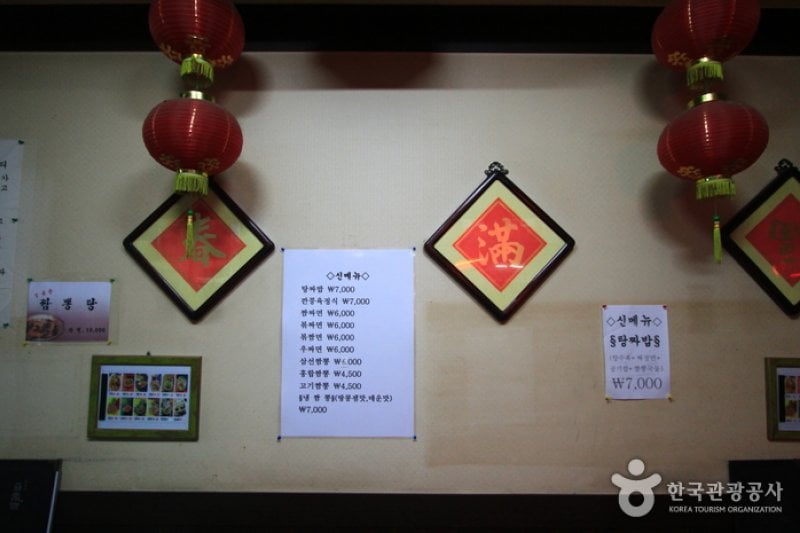 春
滿
짬뽕탕
◇신메뉴◇
탕짜밥 ₩7,000
깐풍육정식 ₩7,000
짬짜면 ₩6,000
볶짜면 ₩6,000
볶짬면 ₩6,000
우짜면 ₩6,000
삼선짬뽕 ₩6,000
홍합짬뽕 ₩4,500
고기짬뽕 ₩4,500
(땅콩찜맛,매운맛)
₩7,000
◇신메뉴◇
§탕짜밥§
(탕수육+짜장면+
공기밥+짬뽕국물)
₩7,000
한국관광공사
KOREA TOURISM ORGANIZATION